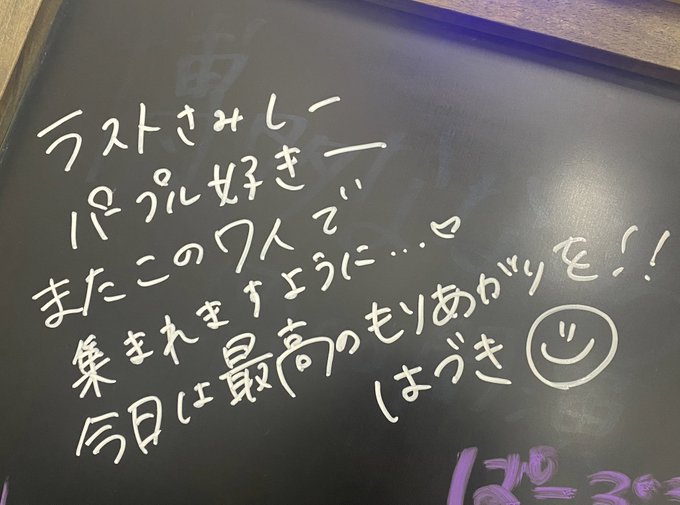 ラストさみしー
パープル好きー
またこの7人で
集まれますように…♡
今日は最高のもりあがりを!!
はづき
ぱーぷる